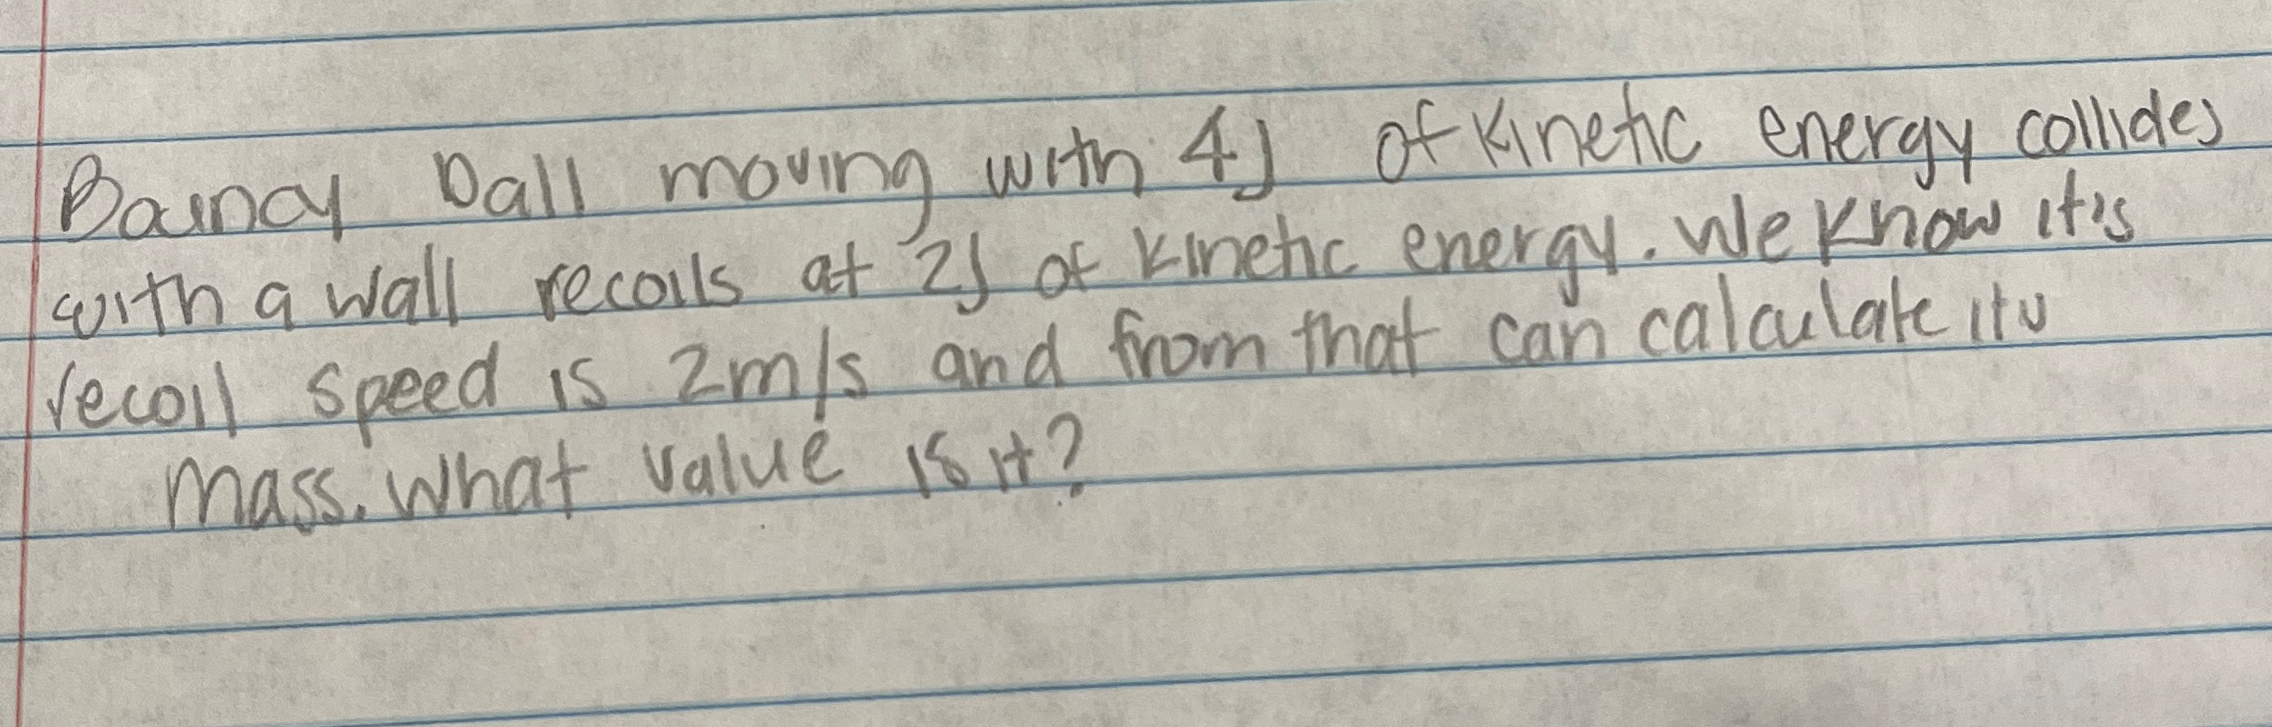 Bouncy ball moving with 4J of kinetic energy collides
with a wall recoils at 2J of kinetic energy. We know it's
recoil speed is 2m/s and from that can calculate its
mass. What value is it?